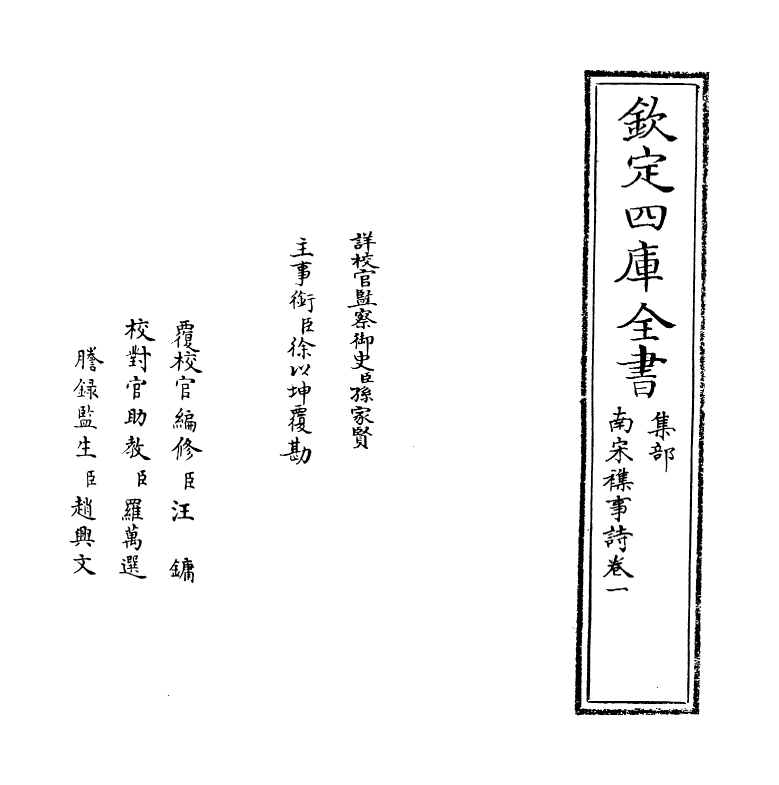 欽定四庫全書
集部
南宋襍事詩卷一
詳校官監察御史臣孫家賢
主事銜臣徐以坤覆勘
覆校官編修臣汪鏞
校對官助教臣羅萬選
謄録監生臣趙興文